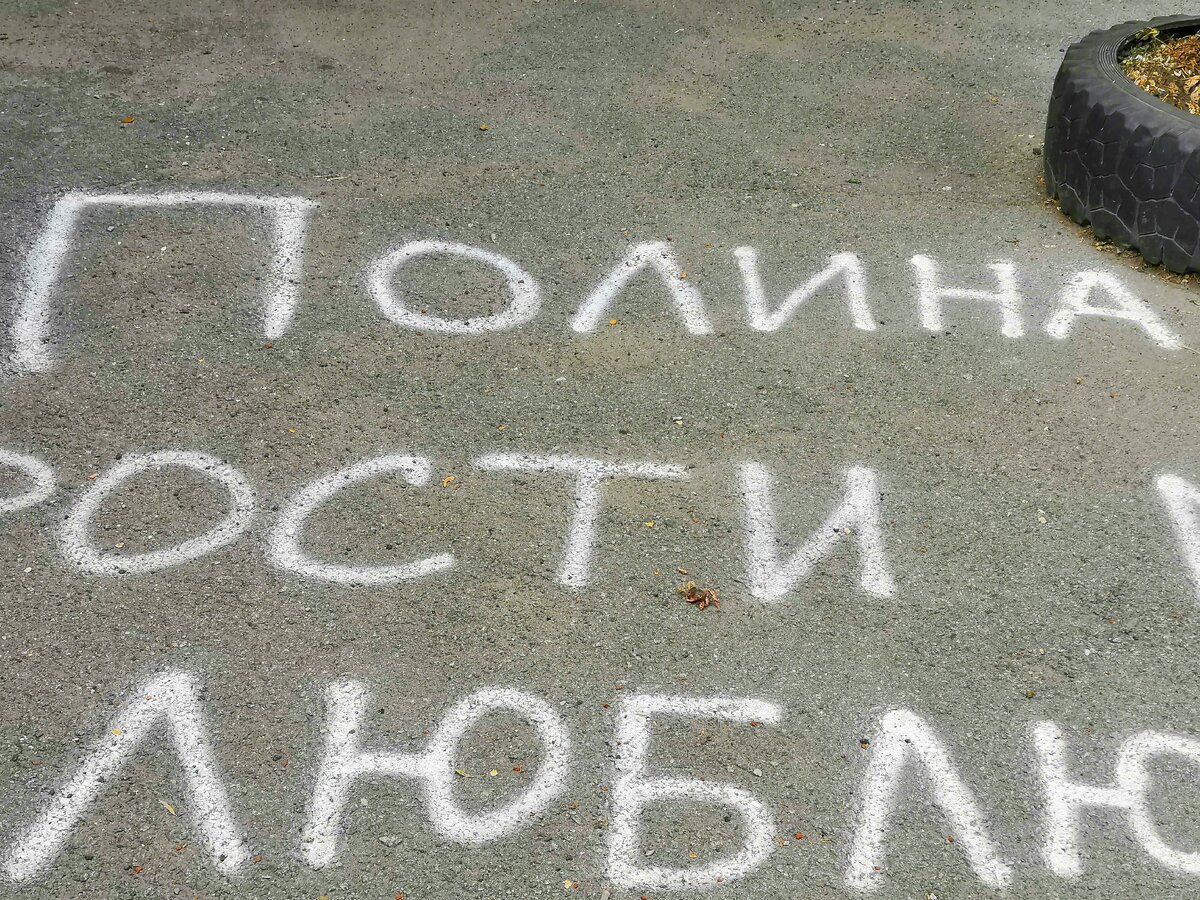 ПОЛИНА
РОСТИ
ЛЮБЛЮ